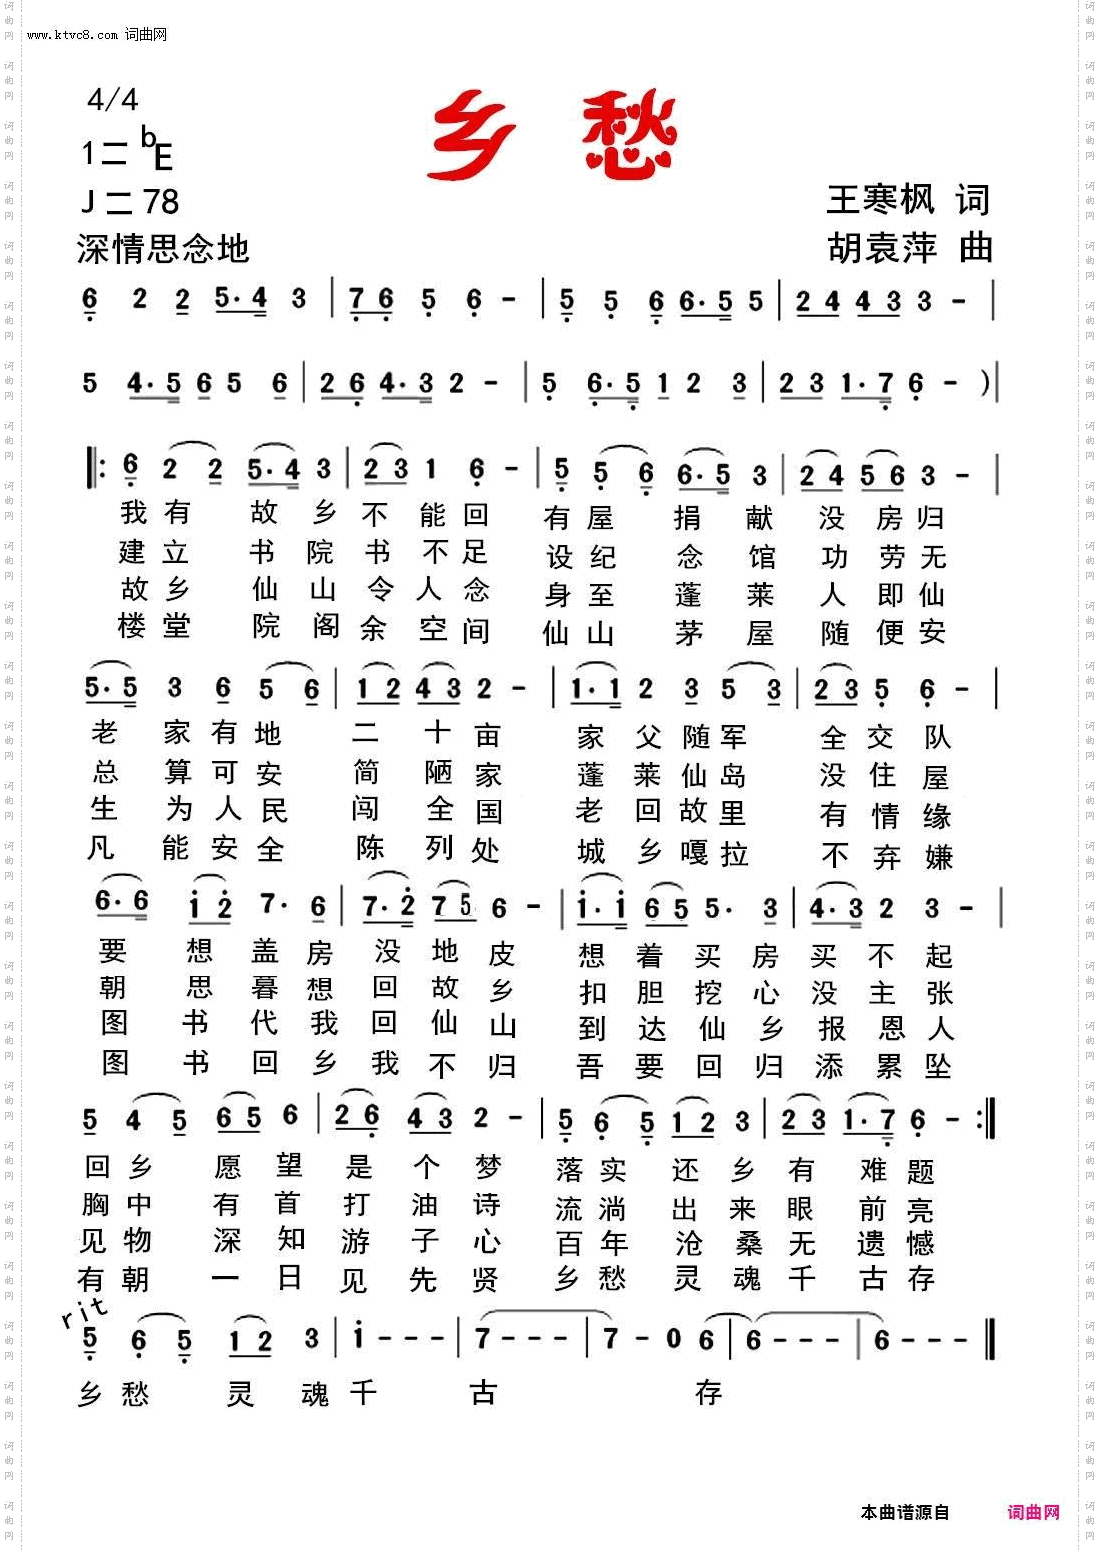 www.ktvc8.com 词曲网
4/4
乡 愁
1二bE
J二78
王寒枫 词
深情思念地
胡袁萍 曲
6 2 2 5·4 3 | 7 6 5 6 - | 5 5 6 6·5 5 | 2 4 4 3 3 - |
5 4·5 6 5 6 | 2 6 4·3 2 - | 5 6·5 1 2 3 | 2 3 1·7 6 - )|
‖: 6 2 2 5·4 3 | 2 3 1 6 - | 5 5 6 6·5 3 | 2 4 5 6 3 - |
我有 故乡不能回 有屋 捐献没房归
建立 书院书不足 设纪 念馆功劳无
故乡 仙山令人念 身至 蓬莱人即仙
楼堂 院阁余空间 仙山 茅屋随便安
5·5 3 6 5 6 | 1 2 4 3 2 - | 1·1 2 3 5 3 | 2 3 5 6 - |
老家有地 二十亩 家父随军 全交队
总算可安 简陋家 蓬莱仙岛 没住屋
生为人民 闯全国 老回故里 有情缘
凡能安全 陈列处 城乡嘎拉 不弃嫌
6·6 i 2 7· 6 | 7·2 7 5 6 - | i·i 6 5 5· 3 | 4·3 2 3 - |
要想盖房没地皮 想着买房买不起
朝思暮想回故乡 扣胆挖心没主张
图书代我回仙山 到达仙乡报恩人
图书回乡我不归 吾要回归添累坠
5 4 5 6 5 6 | 2 6 4 3 2 - | 5 6 5 1 2 3 | 2 3 1·7 6 - :‖
回乡愿望是个梦 落实还乡有难题
胸中有首打油诗 流淌出来眼前亮
见物深知游子心 百年沧桑无遗憾
有朝一日见先贤 乡愁灵魂千古存
rit
5 6 5 1 2 3 | i - - - | 7 - - - | 7 - 0 6 | 6 - - - | 6 - - - ‖
乡愁 灵魂千 古 存
本曲谱源自 词曲网